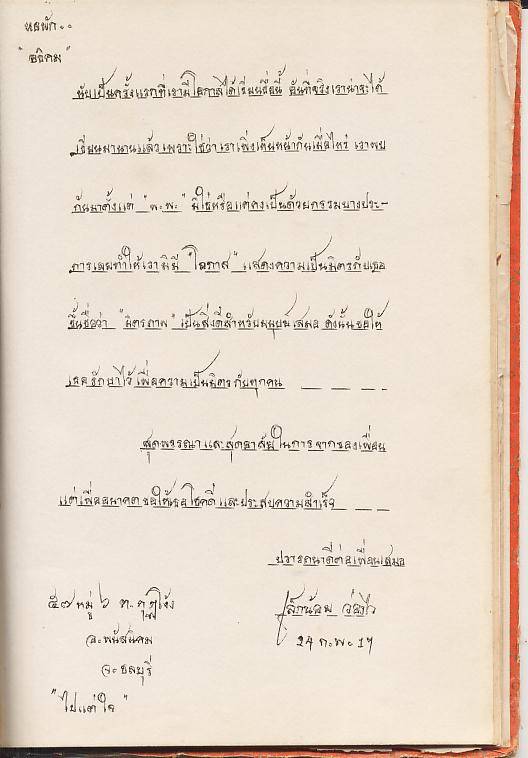 หอพัก..
"อธิคม"
นับเป็นครั้งแรกที่เรามีโอกาสได้เขียนชื่อนี้ อันที่จริงเราน่าจะได้
เขียนมานานแล้วเพราะใช่ว่าเราเพิ่งเห็นหน้ากันเมื่อไหร่ เราพบ
กันมาตั้งแต่ "พ.พ." มิใช่หรือแต่คงเป็นด้วยกรรมบางประ-
การเลยทำให้เรามิมี "โอกาส" แสดงความเป็นมิตรกับเธอ
ขึ้นชื่อว่า "มิตรภาพ" เป็นสิ่งดีสำหรับมนุษย์เสมอ ดังนั้นขอให้
เธอรักษาไว้เพื่อความเป็นมิตรกับทุกคน
สุดพรรณาและสุดอาลัยในการจากของเพื่อน
แต่เพื่ออนาคตขอให้เธอโชคดีและประสบความสำเร็จ
ปรารถนาดีต่อเพื่อนเสมอ
๕๗ หมู่ ๖ ต. กุฎโง้ง
เล็กน้อย ว่องไว
อ. พนัสนิคม
24 ก.พ. 17
จ. ชลบุรี
"ไปแต่ใจ"